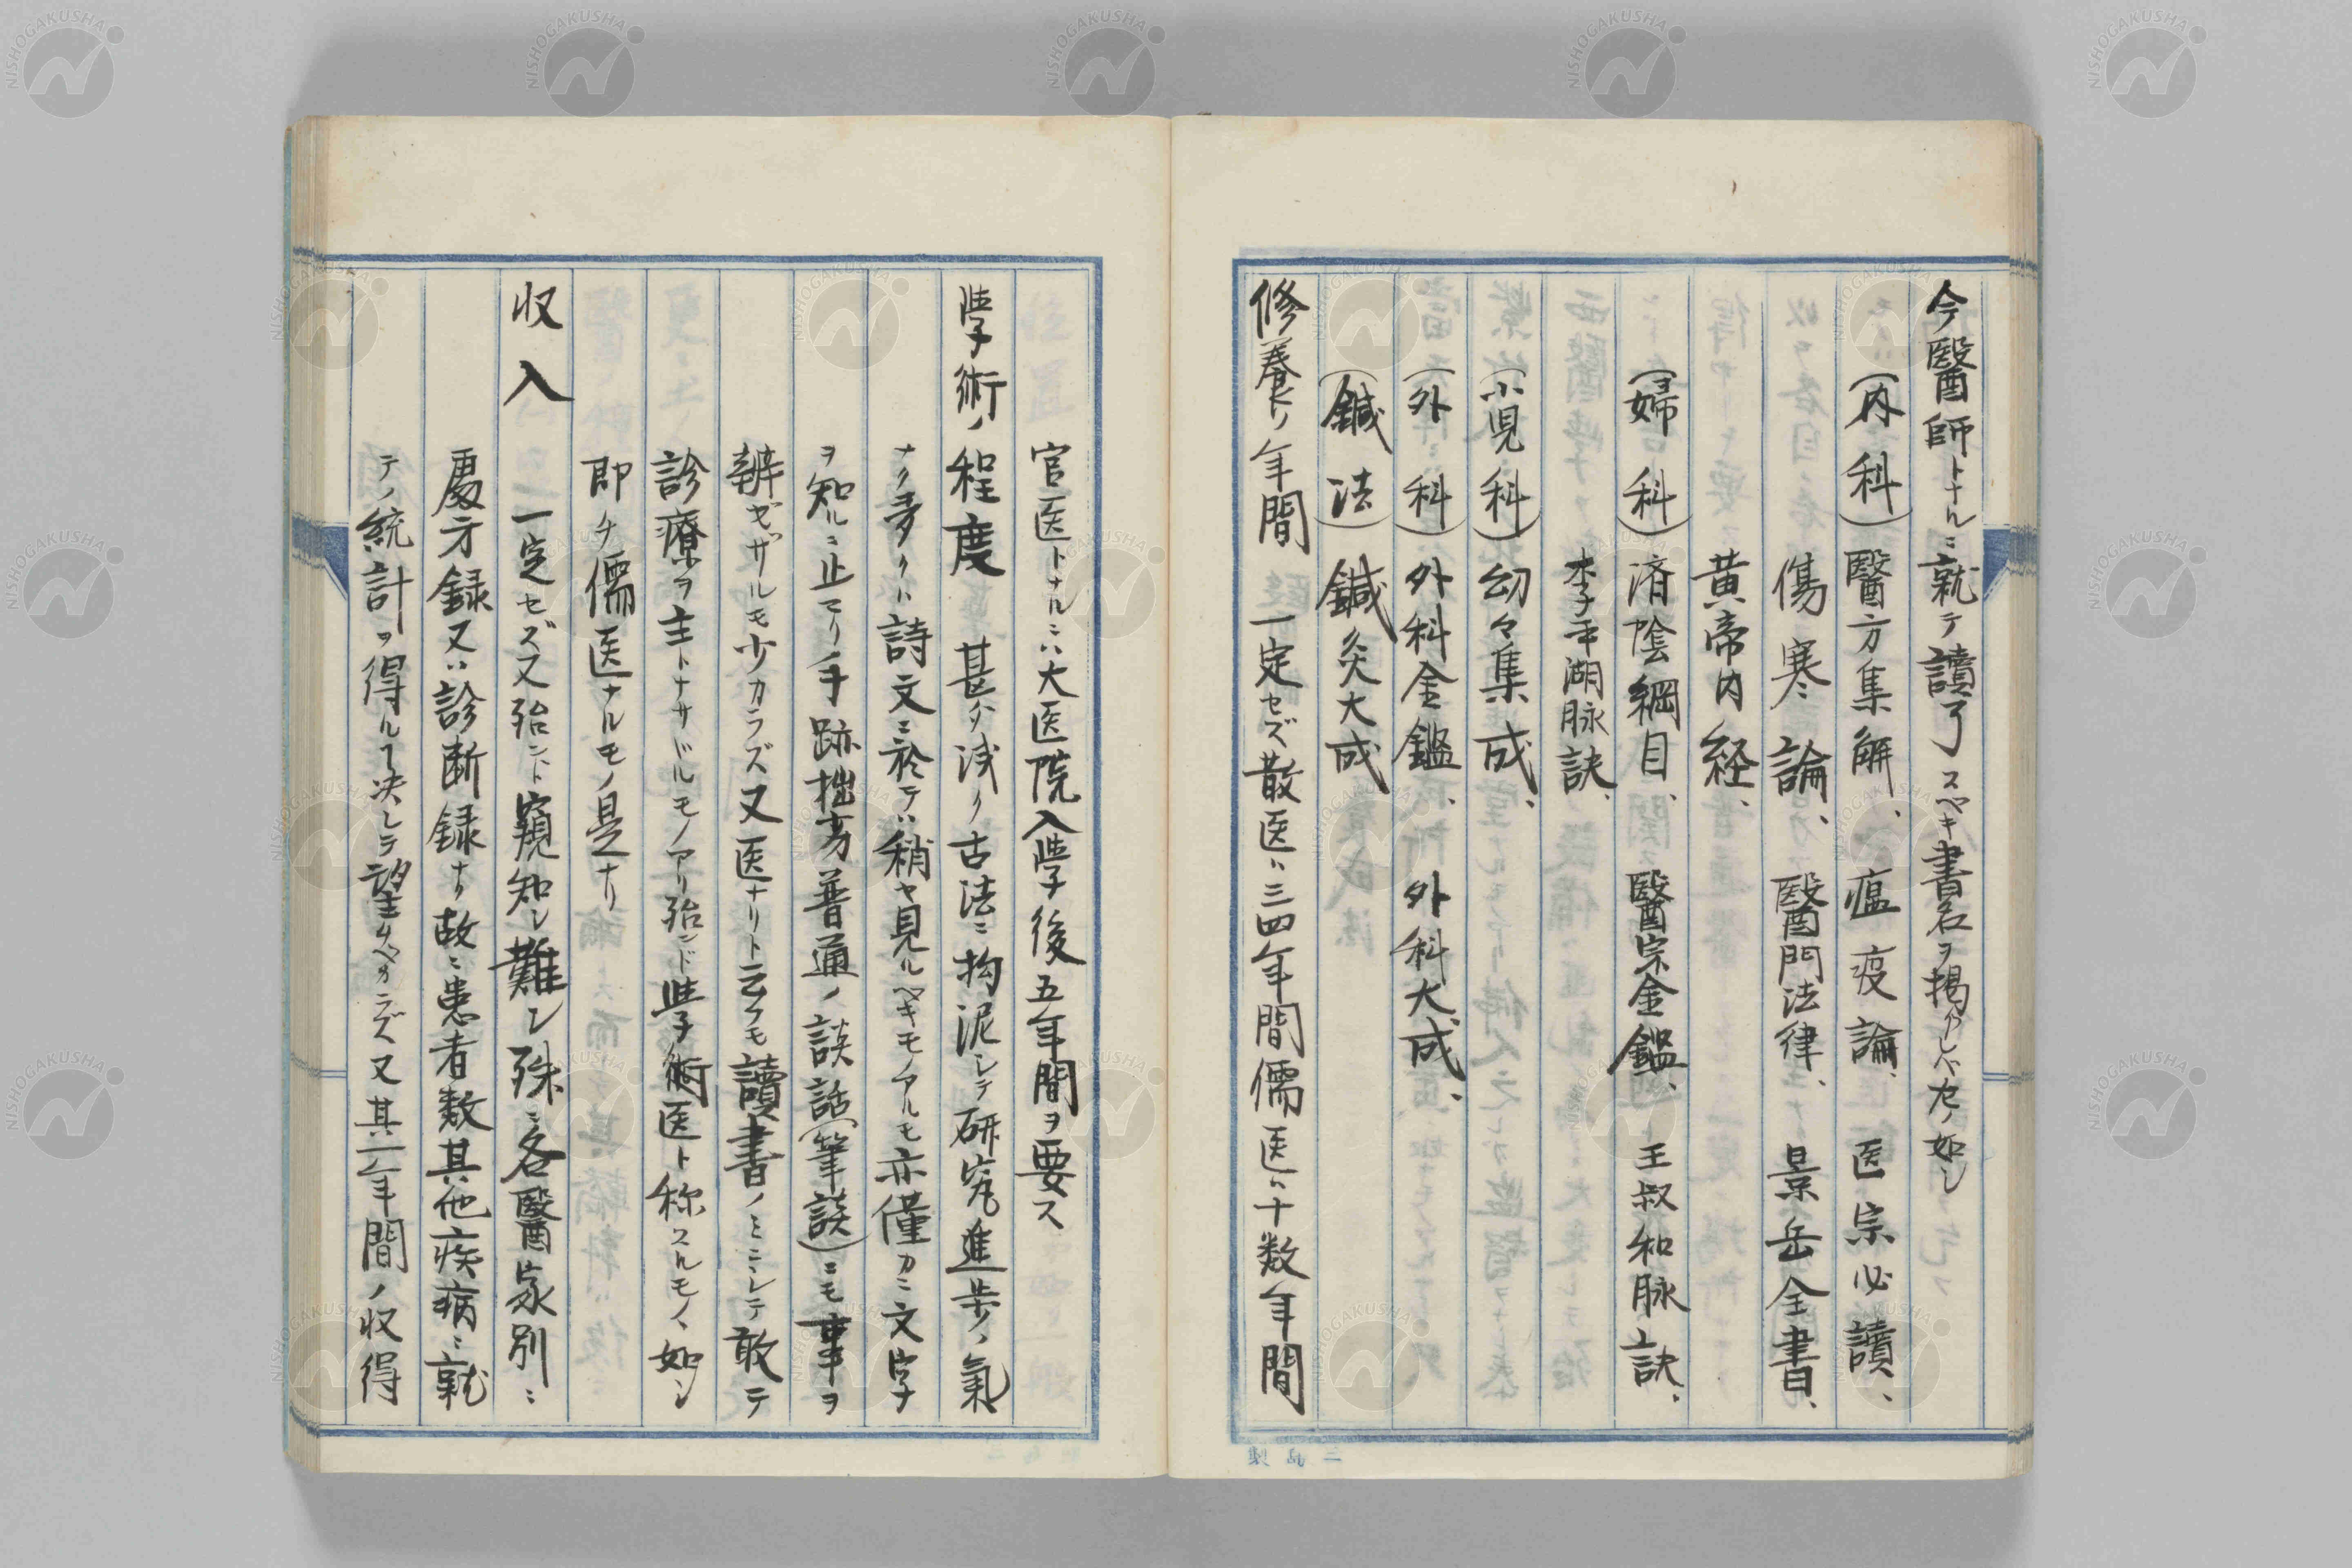 今醫師トナルニ就テ讀了スベキ書名ヲ掲グレバ左ノ如シ
(内科)醫方集解、瘟疫論、医宗必讀、
傷寒論、醫門法律、景岳全書、
黄帝内経、
(婦科)済陰綱目、醫宗金鑑、王叔和脉訣、
李平湖脉訣、
(小児科)幼々集成、
(外科)外科金鑑、外科大成、
(鍼法)鍼灸大成
修養ノ年間 一定セズ散医ハ三四年間儒医ハ十数年間
官医トナルニハ大医院入学後五年間ヲ要ス
学術ノ程度 甚ダ浅ク古法ニ拘泥シテ研究進歩ノ氣
ナク多クハ詩文ニ於テハ稍ヤ見ルベキモノアルモ亦僅カニ文字
ヲ知ルニ止マリ手跡拙劣普通ノ談話(筆談)ニモ事ヲ
辨ゼザルモ少カラズ又医ナリト云フモ讀書ノミニシテ敢テ
診療ヲ主トナサドルモノアリ殆ンド学術医ト称スルモノヽ如シ
即チ儒医ナルモノ是ナリ
収入 一定セズ又殆ント窺知シ難シ殊ニ各醫家別ニ
處方録又ハ診断録ナク故ニ患者数其他疾病ニ就
テノ統計ヲ得ルヿ决シテ望ムベカラズ又其一年間ノ収得
NISHOGAKUSHA